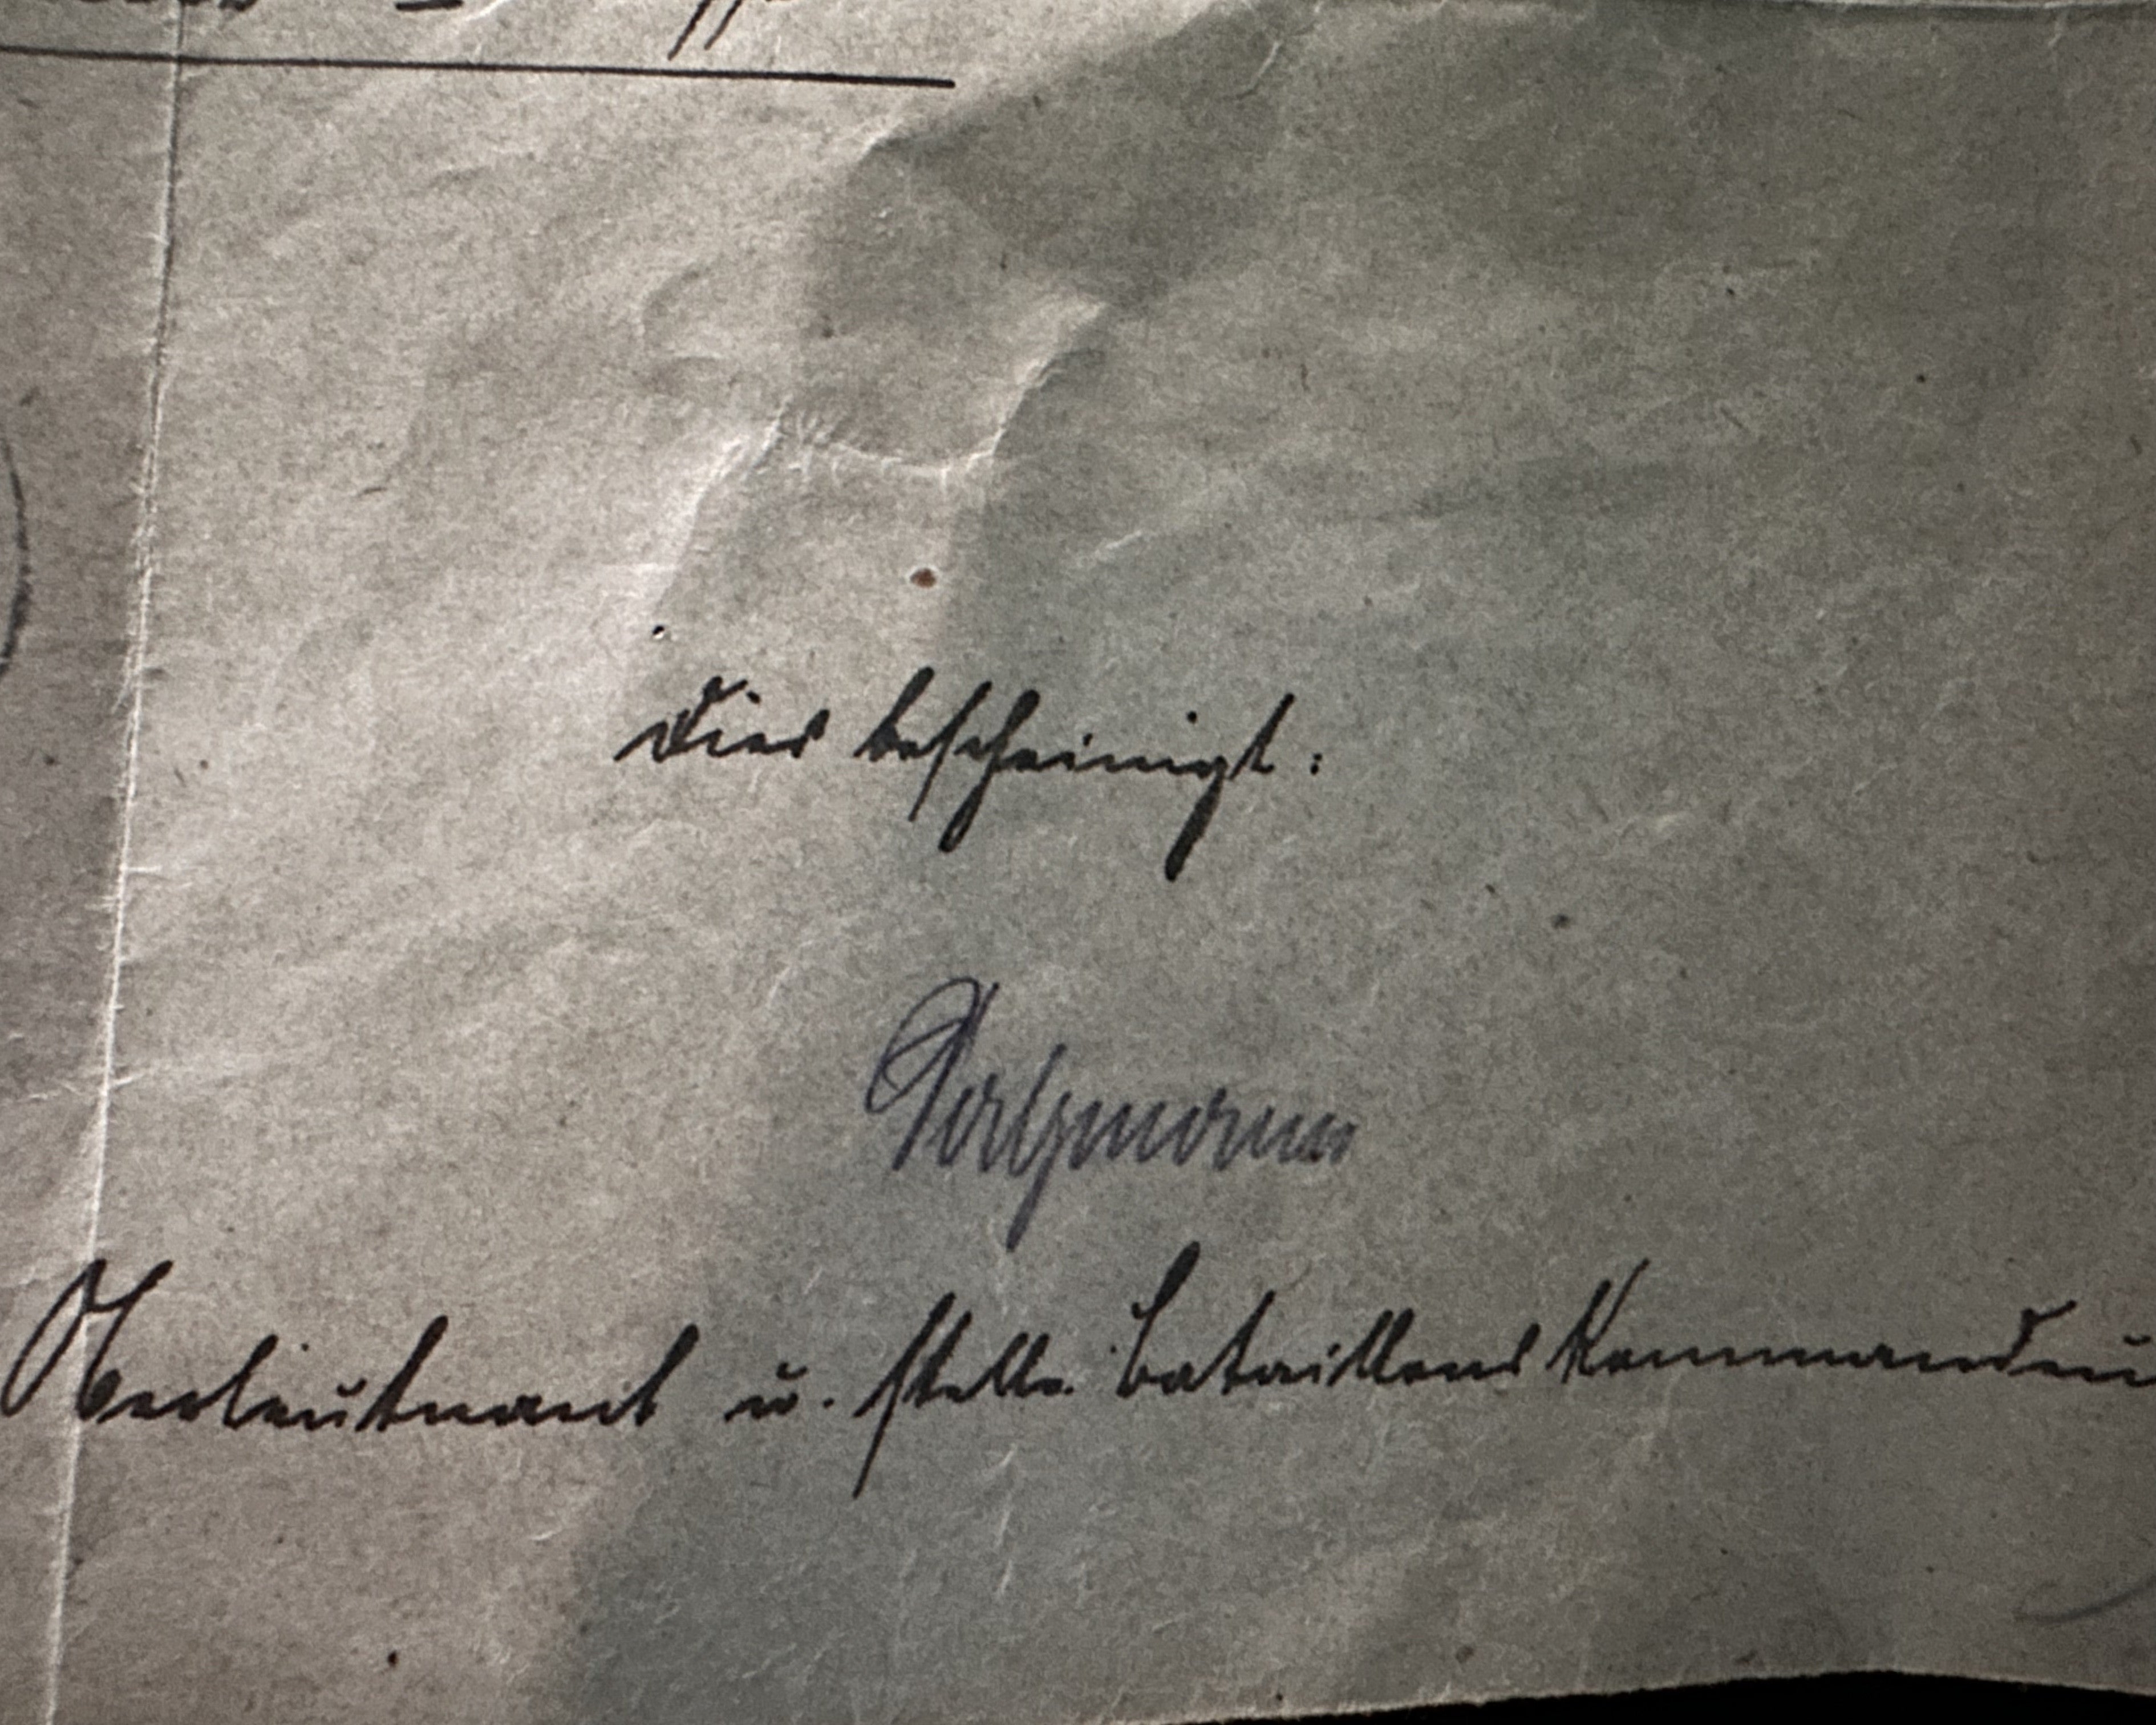 Dies bescheinigt:
Oberleutnant u. stellv. Bataillons Kommandeu